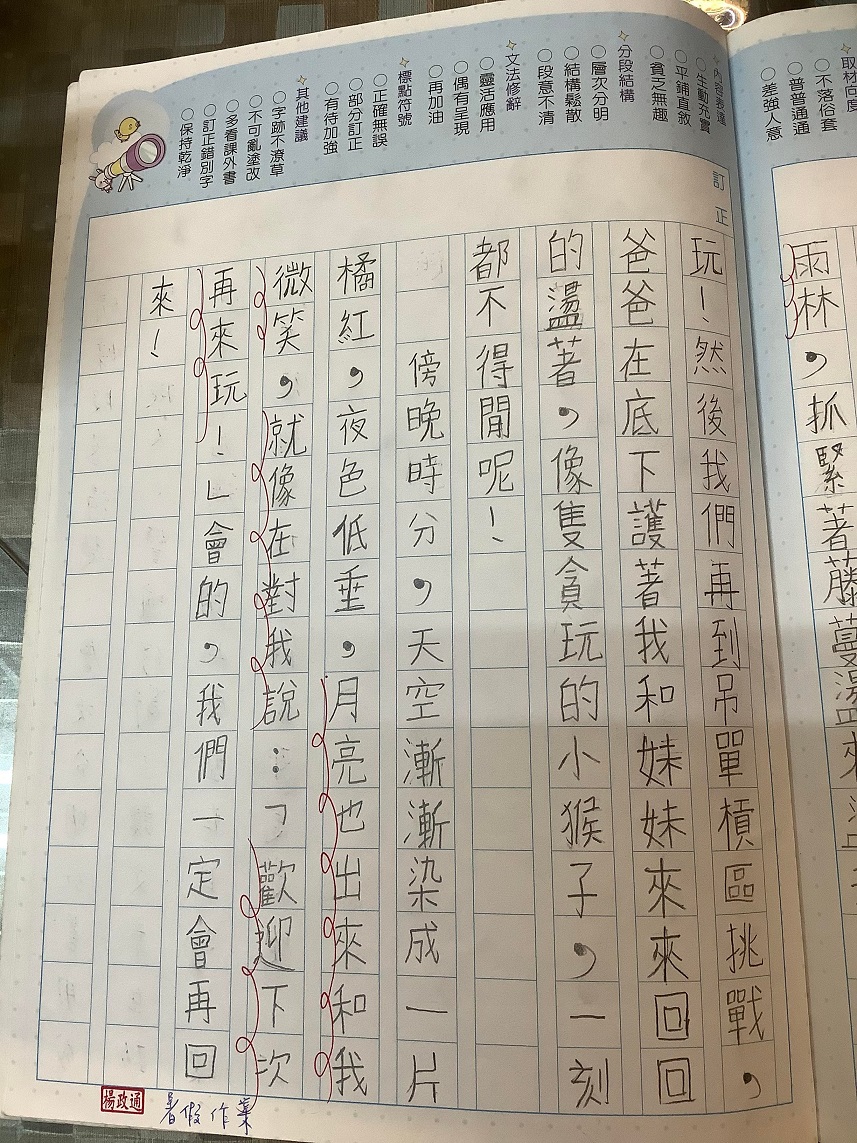 取材向度
○不落俗套
○普普通通
○差強人意
內容表達
○生動充實
○平鋪直敘
○貧乏無趣
分段結構
○層次分明
○結構鬆散
○段意不清
文法修辭
○靈活應用
○偶有呈現
○再加油
標點符號
○正確無誤
○部分訂正
○有待加強
其他建議
○字跡不潦草
○不可亂塗改
○多看課外書
○訂正錯別字
○保持乾淨
訂正
雨林,抓緊著藤蔓盪來
玩!然後我們再到吊單槓區挑戰,
爸爸在底下護著我和妹妹來來回回
的盪著,像隻貪玩的小猴子,一刻
都不得閒呢!
傍晚時分,天空漸漸染成一片
橘紅,夜色低垂,月亮也出來和我
微笑,就像在對我說:「歡迎下次
再來玩!」會的,我們一定會再回
來!
楊政通
暑假作業